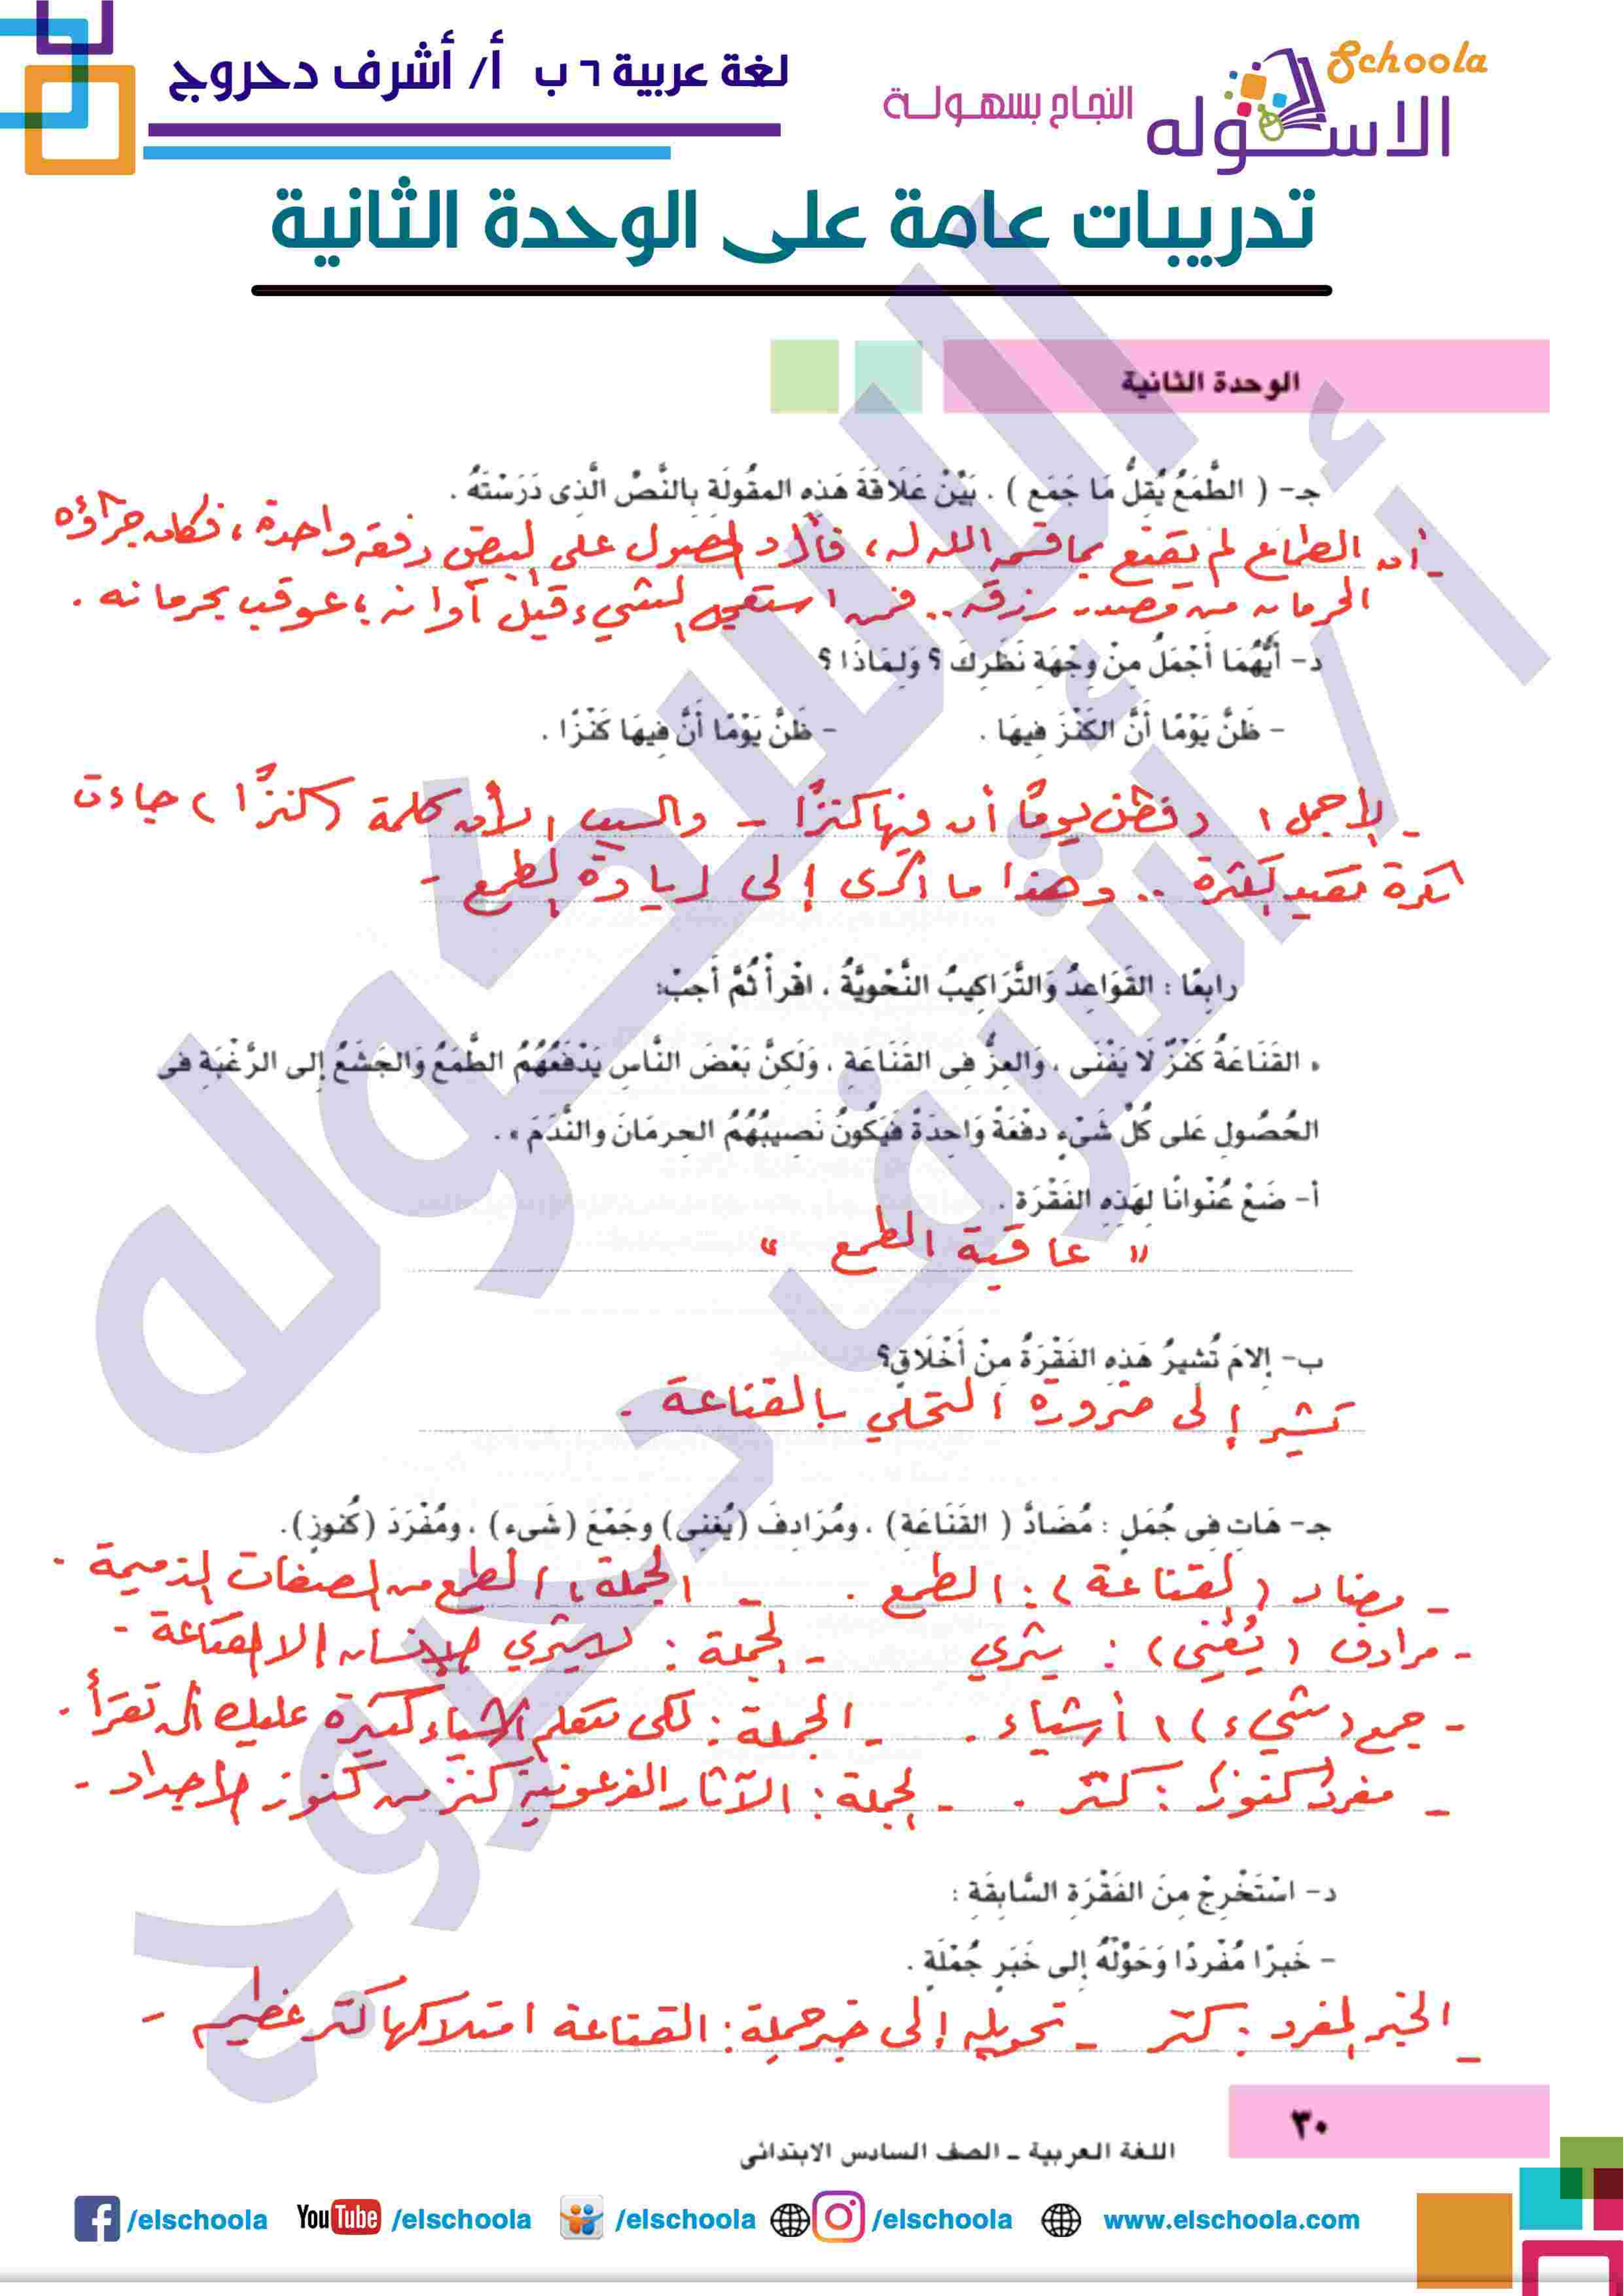 لغة عربية ٦ ب أ/ أشرف دحروج
Schoola
الاسكوله
النجاح بسهولة
تدريبات عامة على الوحدة الثانية
الوحدة الثانية
جـ- ( الطَّمَعُ يُقِلُّ مَا جَمَع ) . بَيِّنْ عَلَاقَةَ هَذِهِ المقُولَةِ بِالنَّصِّ الَّذِى دَرَسْتَهُ .
- أن الطماع لم يقنع بما قسم الله له، فأراد الحصول على البيض دفعة واحدة، فكان جزاؤه
الحرمان من مصدر رزقه .. فمن استعجل الشيء قبل أوانه، عوقب بحرمانه .
د- أَيُّهُمَا أَجْمَلُ مِنْ وِجْهَةِ نَظَرِكَ ؟ وَلِمَاذَا ؟
- ظَنَّ يَوْمًا أَنَّ الكَنْزَ فِيهَا . - ظَنَّ يَوْمًا أَنَّ فِيهَا كَنْزًا .
- الأجمل، فظن يومًا أن فيها كنزًا - والسبب، لأن كلمة (كنزًا) جاءت
نكرة تفيد الكثرة .. وهذا ما أدى إلى زيادة الطمع -
رابِعًا : القَوَاعِدُ وَالتَّرَاكِيبُ النَّحْوِيَّةُ ، اقْرأْ ثُمَّ أَجبْ:
« القَنَاعَةُ كَنْزٌ لَا يَفْنَى ، وَالعِزُّ فِى القَنَاعَةِ ، وَلَكِنَّ بَعْضَ النَّاسِ يَدْفَعُهُمُ الطَّمَعُ وَالجَشَعُ إِلى الرَّغْبَةِ فِى
الحُصُولِ عَلى كُلِّ شَىْءٍ دفْعَةً وَاحِدَةً فَيَكُونُ نَصِيبُهُمُ الحِرمَانَ والنَّدَمَ » .
أ- ضَعْ عُنْوانًا لِهَذِهِ الفَقْرَة .
" عاقبة الطمع "
ب- إِلامَ تُشيرُ هَذِهِ الفَقْرَةُ مِنْ أَخْلَاقٍ؟
تشير إلى ضرورة التحلي بالقناعة .
جـ- هَاتِ فِى جُمَلٍ : مُضَادَّ ( القَنَاعَةِ) ، ومُرَادِفَ (يُغْنِى) وجَمْعَ (شَىء) ، ومُفْرَدَ (كُنوزِ).
- مضاد (القناعة) : الطمع . - الجملة : الطمع من الصفات الذميمة .
- مرادف (يُغني) : يثري - الجملة : لا يثري الإنسان إلا القناعة -
- جمع (شيء) : أشياء . - الجملة : لكي تتعلم أشياء كثيرة عليك أن تقرأ .
- مفرد (كنوز) : كنز . - الجملة : الآثار الفرعونية كنز من كنوز الأجداد -
د- اسْتَخْرِجْ مِنَ الفَقْرَةِ السَّابِقَةِ :
- خَبَرًا مُفْردًا وَحَوِّلْهُ إلى خَبَرِ جُمْلَةٍ .
- الخبر المفرد : كنز - تحويله إلى خبر جملة : القناعة امتلاكها كنز عظيم -
٣٠
اللغة العربية – الصف السادس الابتدائى
/elschoola YouTube /elschoola /elschoola /elschoola www.elschoola.com